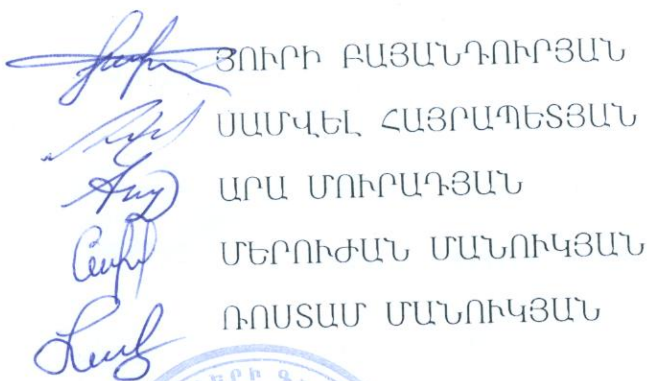 ՅՈՒՐԻ ԲԱՅԱՆԴՈՒՐՅԱՆ
ՍԱՄՎԵԼ ՀԱՅՐԱՊԵՏՅԱՆ
ԱՐԱ ՄՈՒՐԱԴՅԱՆ
ՄԵՐՈՒԺԱՆ ՄԱՆՈՒԿՅԱՆ
ՌՈՍՏԱՄ ՄԱՆՈՒԿՅԱՆ